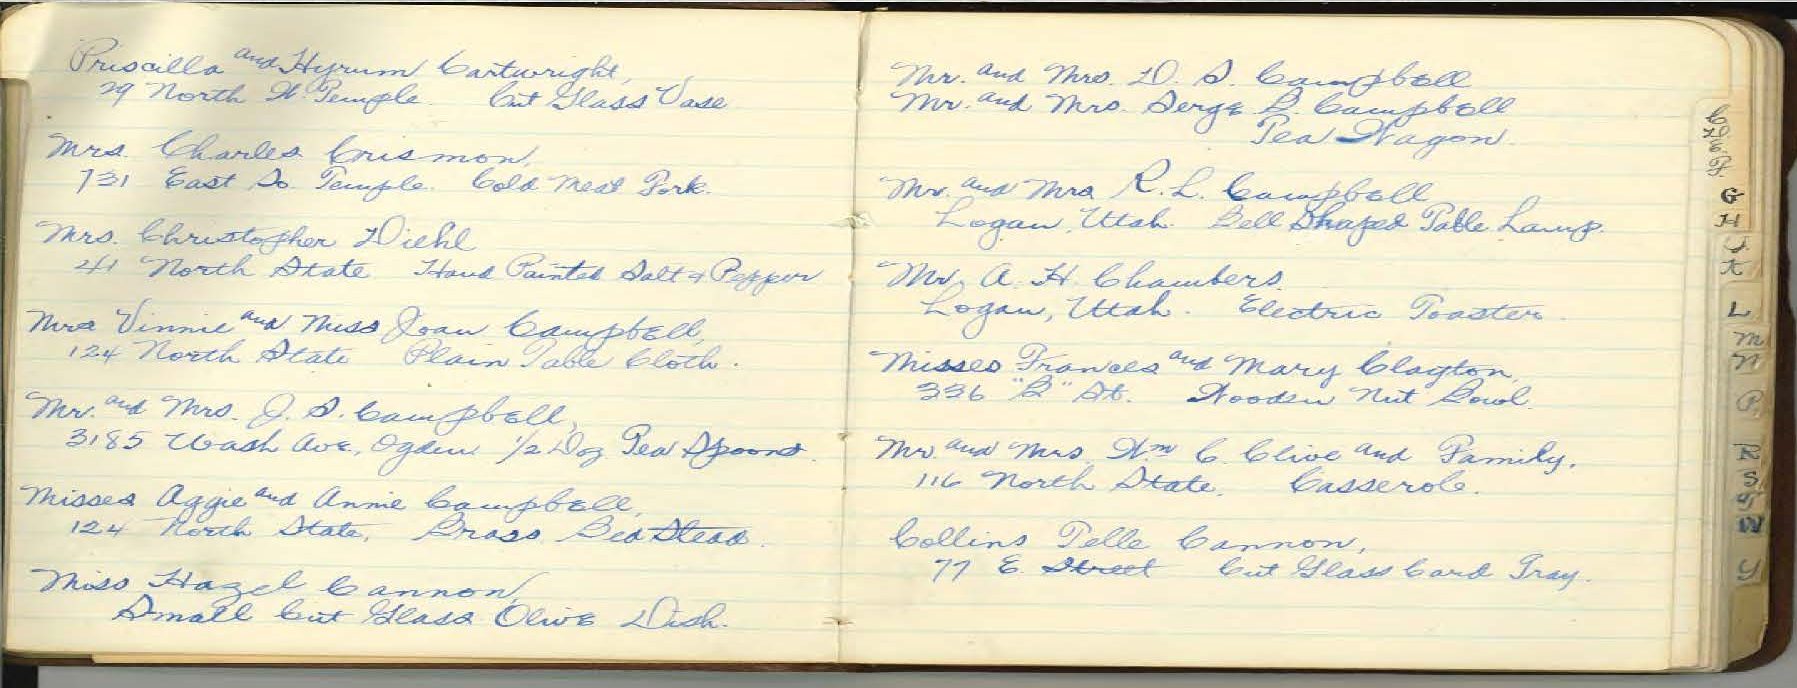 Priscilla and Hyrum Cartwright,
29 North W. Temple. Cut Glass Vase
Mrs. Charles Crismon,
731 East So. Temple. Cold Meat Fork.
Mrs. Christopher Diehl
41 North State Hand Painted Salt & Pepper
Mrs Vinnie and Miss Joan Campbell,
124 North State Plain Table Cloth.
Mr. and Mrs. J. S. Campbell,
3185 Wash Ave, Ogden 1/2 Doz Tea Spoons.
Misses Aggie and Annie Campbell,
124 North State, Brass Bed Stead.
Miss Hazel Cannon,
Small Cut Glass Olive Dish.
Mr. and Mrs. D. S. Campbell
Mr. and Mrs. Serge B. Campbell
Tea Wagon.
Mr. and Mrs R. L. Campbell
Logan, Utah. Bell Shaped Table Lamp.
Mr. A. H. Chambers.
Logan, Utah. Electric Toaster.
Misses Frances and Mary Clayton,
336 "B" St. Wooden Nut Bowl.
Mr. and Mrs. Wm C. Clive and Family,
116 North State. Casserole.
Collins Telle Cannon,
77 E. Street Cut Glass Card Tray.
C
D
E
F
G
H
J
K
L
M
N
P
R
S
T
W
Y